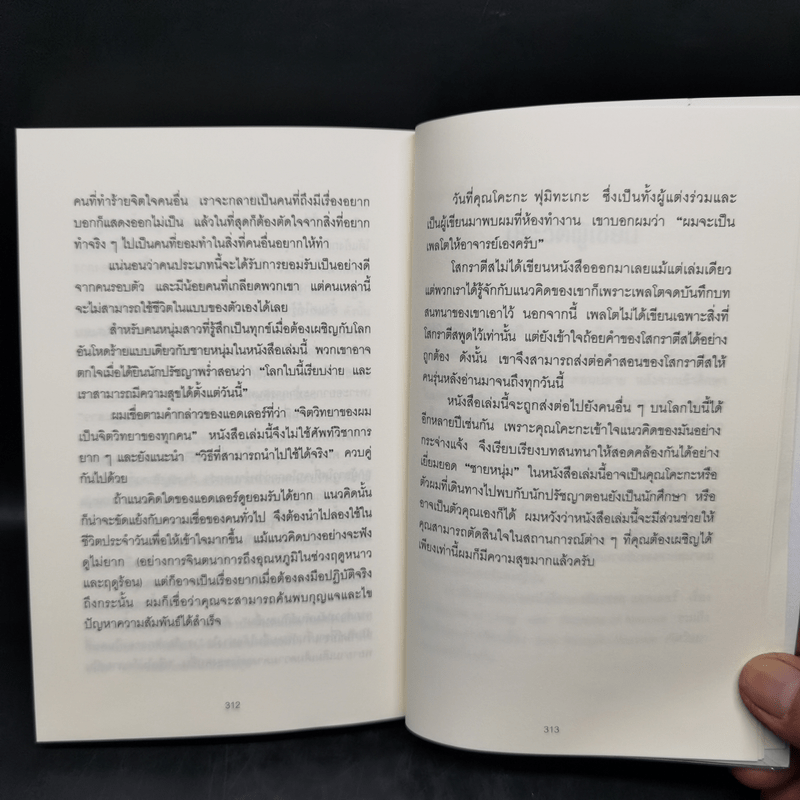 คนที่ทำร้ายจิตใจคนอื่น เราจะกลายเป็นคนที่ถึงมีเรื่องอยาก
บอกก็แสดงออกไม่เป็น แล้วในที่สุดก็ต้องตัดใจจากสิ่งที่อยาก
ทำจริง ๆ ไปเป็นคนที่ยอมทำในสิ่งที่คนอื่นอยากให้ทำ
แน่นอนว่าคนประเภทนี้จะได้รับการยอมรับเป็นอย่างดี
จากคนรอบตัว และมีน้อยคนที่เกลียดพวกเขา แต่คนเหล่านี้
จะไม่สามารถใช้ชีวิตในแบบของตัวเองได้เลย
สำหรับคนหนุ่มสาวที่รู้สึกเป็นทุกข์เมื่อต้องเผชิญกับโลก
อันโหดร้ายแบบเดียวกับชายหนุ่มในหนังสือเล่มนี้ พวกเขาอาจ
ตกใจเมื่อได้ยินนักปรัชญาพร่ำสอนว่า “โลกใบนี้เรียบง่าย และ
เราสามารถมีความสุขได้ตั้งแต่วันนี้”
ผมเชื่อตามคำกล่าวของแอดเลอร์ที่ว่า “จิตวิทยาของผม
เป็นจิตวิทยาของทุกคน” หนังสือเล่มนี้จึงไม่ใช้ศัพท์วิชาการ
ยาก ๆ และยังแนะนำ “วิธีที่สามารถนำไปใช้ได้จริง” ควบคู่
กันไปด้วย
ถ้าแนวคิดใดของแอดเลอร์ดูยอมรับได้ยาก แนวคิดนั้น
ก็น่าจะขัดแย้งกับความเชื่อของคนทั่วไป จึงต้องนำไปลองใช้ใน
ชีวิตประจำวันเพื่อให้เข้าใจมากขึ้น แม้แนวคิดบางอย่างจะฟัง
ดูไม่ยาก (อย่างการจินตนาการถึงอุณหภูมิในช่วงฤดูหนาว
และฤดูร้อน) แต่ก็อาจเป็นเรื่องยากเมื่อต้องลงมือปฏิบัติจริง
ถึงกระนั้น ผมก็เชื่อว่าคุณจะสามารถค้นพบกุญแจและไข
ปัญหาความสัมพันธ์ได้สำเร็จ
312
วันที่คุณโคะกะ ฟุมิทะเกะ ซึ่งเป็นทั้งผู้แต่งร่วมและ
เป็นผู้เขียนมาพบผมที่ห้องทำงาน เขาบอกผมว่า “ผมจะเป็น
เพลโตให้อาจารย์เองครับ”
โสกราตีสไม่ได้เขียนหนังสือออกมาเลยแม้แต่เล่มเดียว
แต่พวกเราได้รู้จักกับแนวคิดของเขาก็เพราะเพลโตจดบันทึกบท
สนทนาของเขาเอาไว้ นอกจากนี้ เพลโตไม่ได้เขียนเฉพาะสิ่งที่
โสกราตีสพูดไว้เท่านั้น แต่ยังเข้าใจถ้อยคำของโสกราตีสได้อย่าง
ถูกต้อง ดังนั้น เขาจึงสามารถส่งต่อคำสอนของโสกราตีสให้
คนรุ่นหลังอ่านมาจนถึงทุกวันนี้
หนังสือเล่มนี้จะถูกส่งต่อไปยังคนอื่น ๆ บนโลกใบนี้ได้
อีกหลายปีเช่นกัน เพราะคุณโคะกะเข้าใจแนวคิดของมันอย่าง
กระจ่างแจ้ง จึงเรียบเรียงบทสนทนาให้สอดคล้องกันได้อย่าง
เยี่ยมยอด “ชายหนุ่ม” ในหนังสือเล่มนี้อาจเป็นคุณโคะกะหรือ
ตัวผมที่เดินทางไปพบกับนักปรัชญาตอนยังเป็นนักศึกษา หรือ
อาจเป็นตัวคุณเองก็ได้ ผมหวังว่าหนังสือเล่มนี้จะมีส่วนช่วยให้
คุณสามารถตัดสินใจในสถานการณ์ต่าง ๆ ที่คุณต้องเผชิญได้
เพียงเท่านี้ผมก็มีความสุขมากแล้วครับ
313